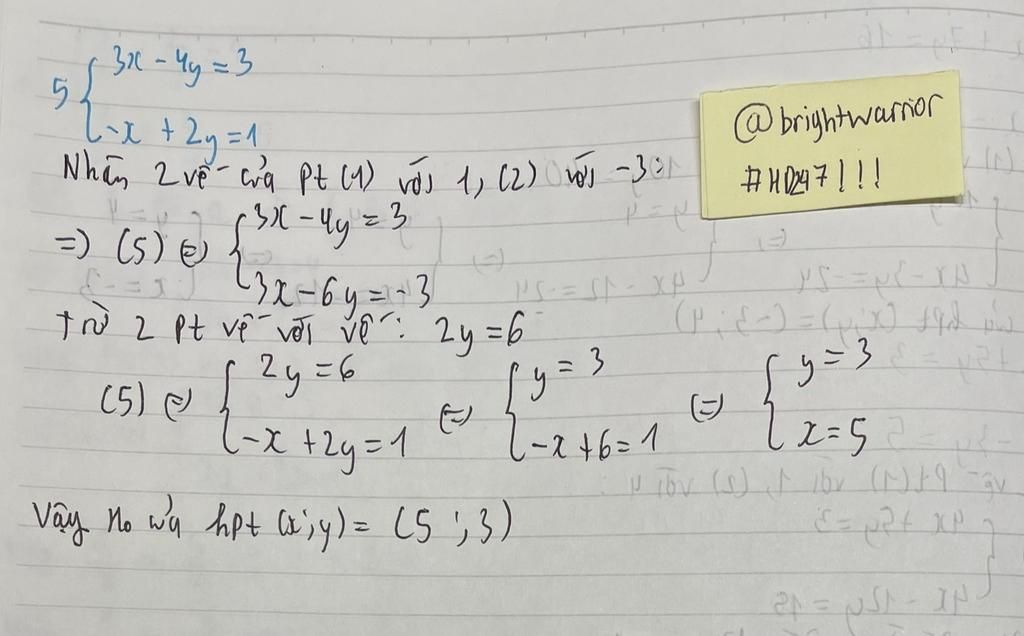 5 { 3x - 4y = 3
-x + 2y = 1
Nhân 2 vế của Pt (1) với 1, (2) với -3:
=> (5) <=> { 3x - 4y = 3
3x - 6y = -3
trừ 2 Pt vế với vế: 2y = 6
(5) <=> { 2y = 6 <=> { y = 3 <=> { y = 3
-x + 2y = 1 -x + 6 = 1 x = 5
Vậy no của hpt (x;y) = (5;3)
@brightwarrior
#HD247!!!